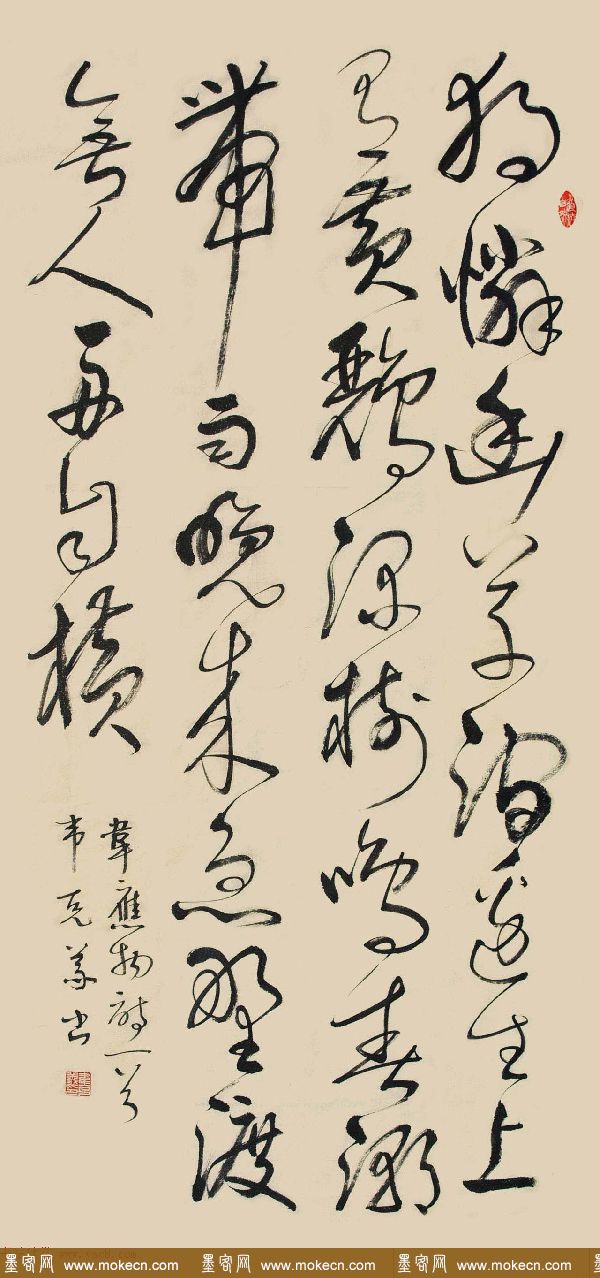 独憐幽草澗邊生上
有黄鸝深樹鳴春潮
帶雨晚来急野渡
無人舟自横
韋應物詩一首
韦克義书
com 墨客网 www.mokecn.com 墨客网 www.mokecn.com 墨客网 www.mokecn.com